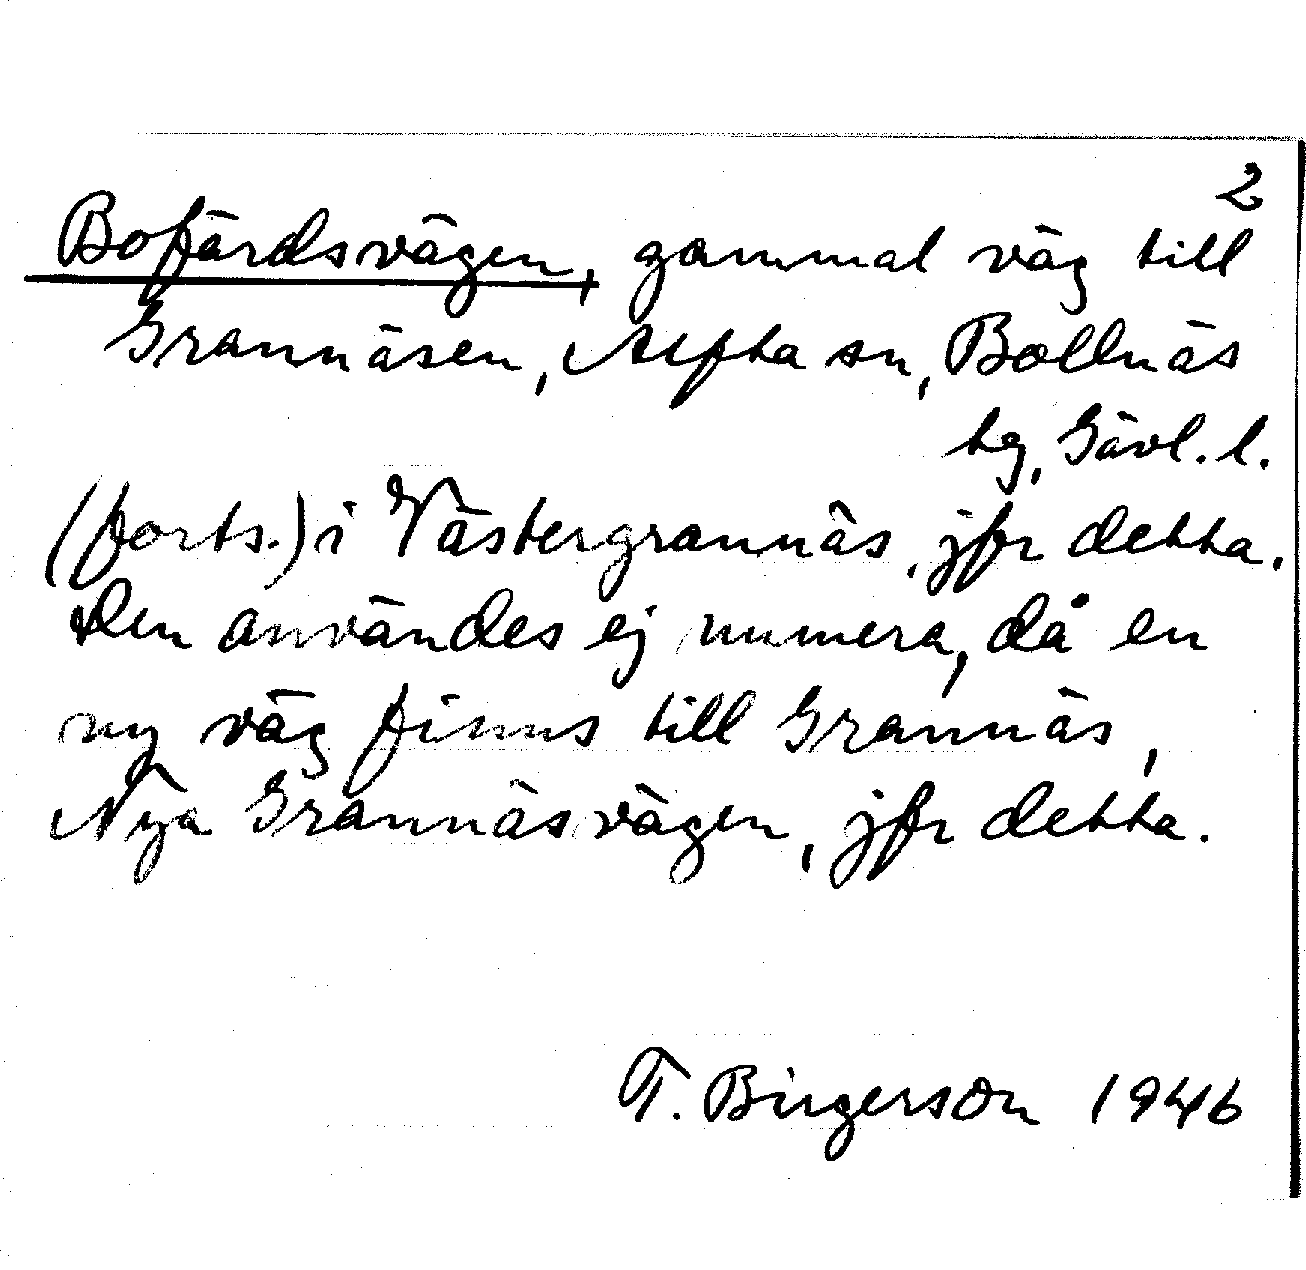 2
Bofärdsvägen, gammal väg till
Grannäsen, Alfta sn, Bollnäs
tg, Gävl. l.
(forts.) i Västergrannäs, jfr detta.
Den användes ej numera, då en
ny väg finns till Grannäs,
Nya Grannäsvägen, jfr detta.
T. Birgerson 1946